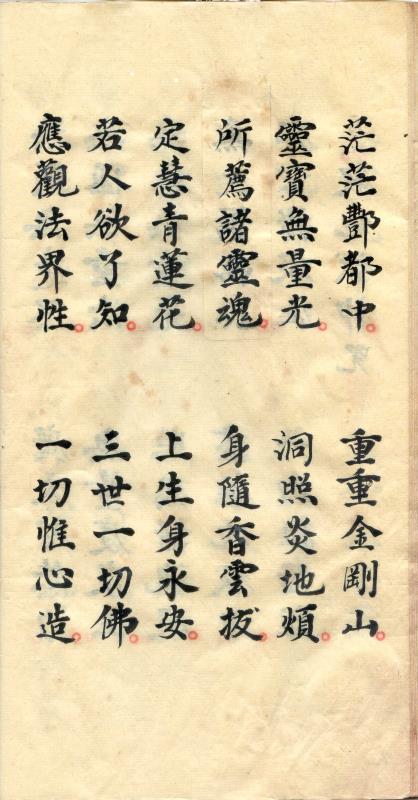 茫茫酆都中。重重金剛山。
靈寶無量光。洞照炎地煩。
所薦諸靈魂。身隨香雲拔。
定慧青蓮花。上生身永安。
若人欲了知。三世一切佛。
應觀法界性。一切惟心造。